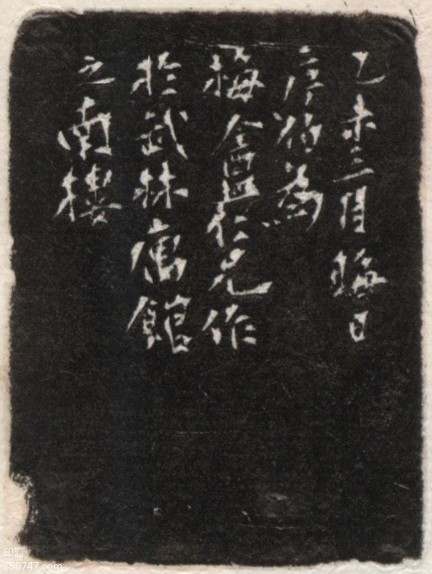 乙未三月晦日
序伯為
梅盦仁兄作
於武林寓館
之南樓